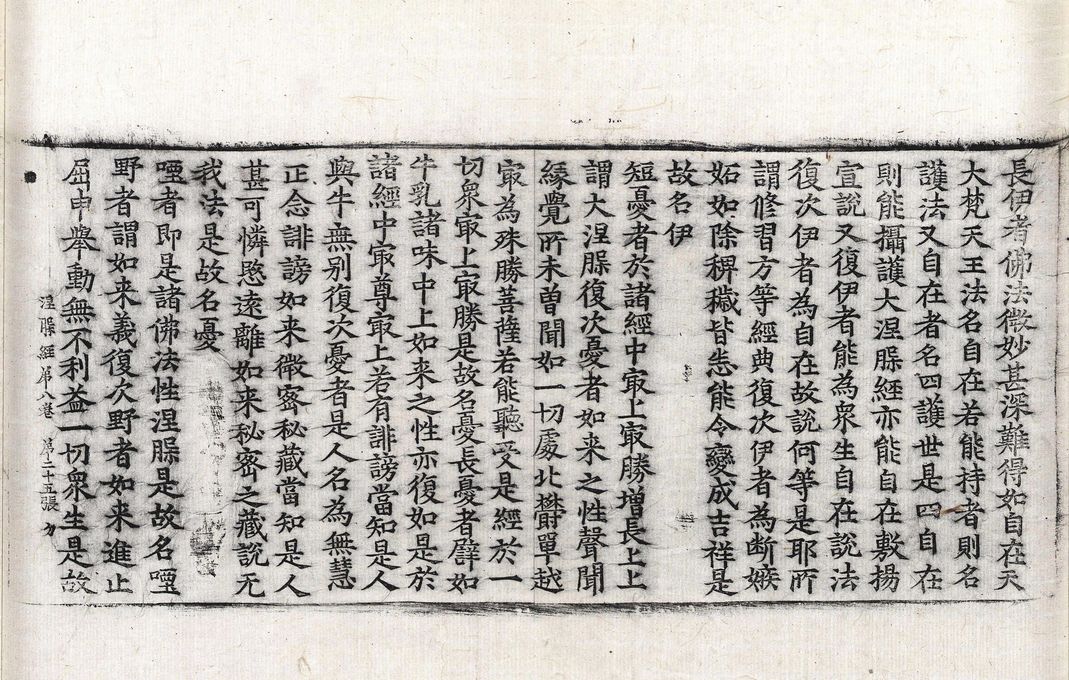 長伊者佛法微妙甚深難得如自在天
大梵天王法名自在若能持者則名
護法又自在者名四護世是四自在
則能攝護大涅脲經亦能自在敷揚
宣說又復伊者能為衆生自在說法
復次伊者為自在故說何等是耶所
謂修習方等經典復次伊者為断嫉
妬如除稗穢皆悉能令變成吉祥是
故名伊
短憂者於諸經中㝡上㝡勝增長上上
謂大涅脲復次憂者如来之性聲聞
緣覺所未曽聞如一切處北欝單越
㝡為殊勝菩薩若能聽受是經於一
切衆㝡上㝡勝是故名憂長憂者譬如
牛乳諸味中上如来之性亦復如是於
諸經中㝡尊㝡上若有誹謗當知是人
與牛無别復次憂者是人名為無慧
正念誹謗如来微宻秘藏當知是人
甚可憐愍遠離如来秘宻之藏說无
我法是故名憂
㖶者即是諸佛法性涅脲是故名㖶
野者謂如来義復次野者如来進止
屈申舉動無不利益一切衆生是故
涅脲經第八卷 第二十五張 力